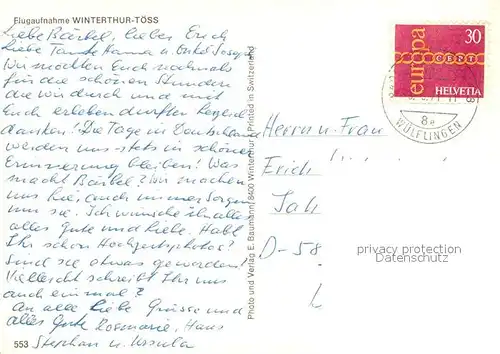 Flugaufnahme WINTERTHUR-TÖSS
Liebe Bärbel, lieber Erich
liebe Tante Hanna u. Onkel Josef
Wir möchten Euch nochmals
für die schönen Stunden
die wir durch und mit
Euch erleben durften herzlich
danken! Die Tage in Deutschland
werden uns stets in schöner
Erinnerung bleiben! Was
macht Bärbel? Wir machen
uns hie, auch immer Sorgen
um sie. Ich wünsche ihr alles
alles Gute und Liebe. Habt
Ihr schon Hochzeitsphotos?
Sind sie etwas geworden!
Vielleicht schreibt Ihr uns
auch einmal?
An alle liebe Grüsse und
alles Gute Rosmarie, Hans
Stephan u. Ursula
553
Photo und Verlag E. Baumann, 8400 Winterthur / Printed in Switzerland
europa
CEPT
30
HELVETIA
8e
WÜLFLINGEN
Herrn u. Frau
Erich
D-58
privacy protection
Sammler.com